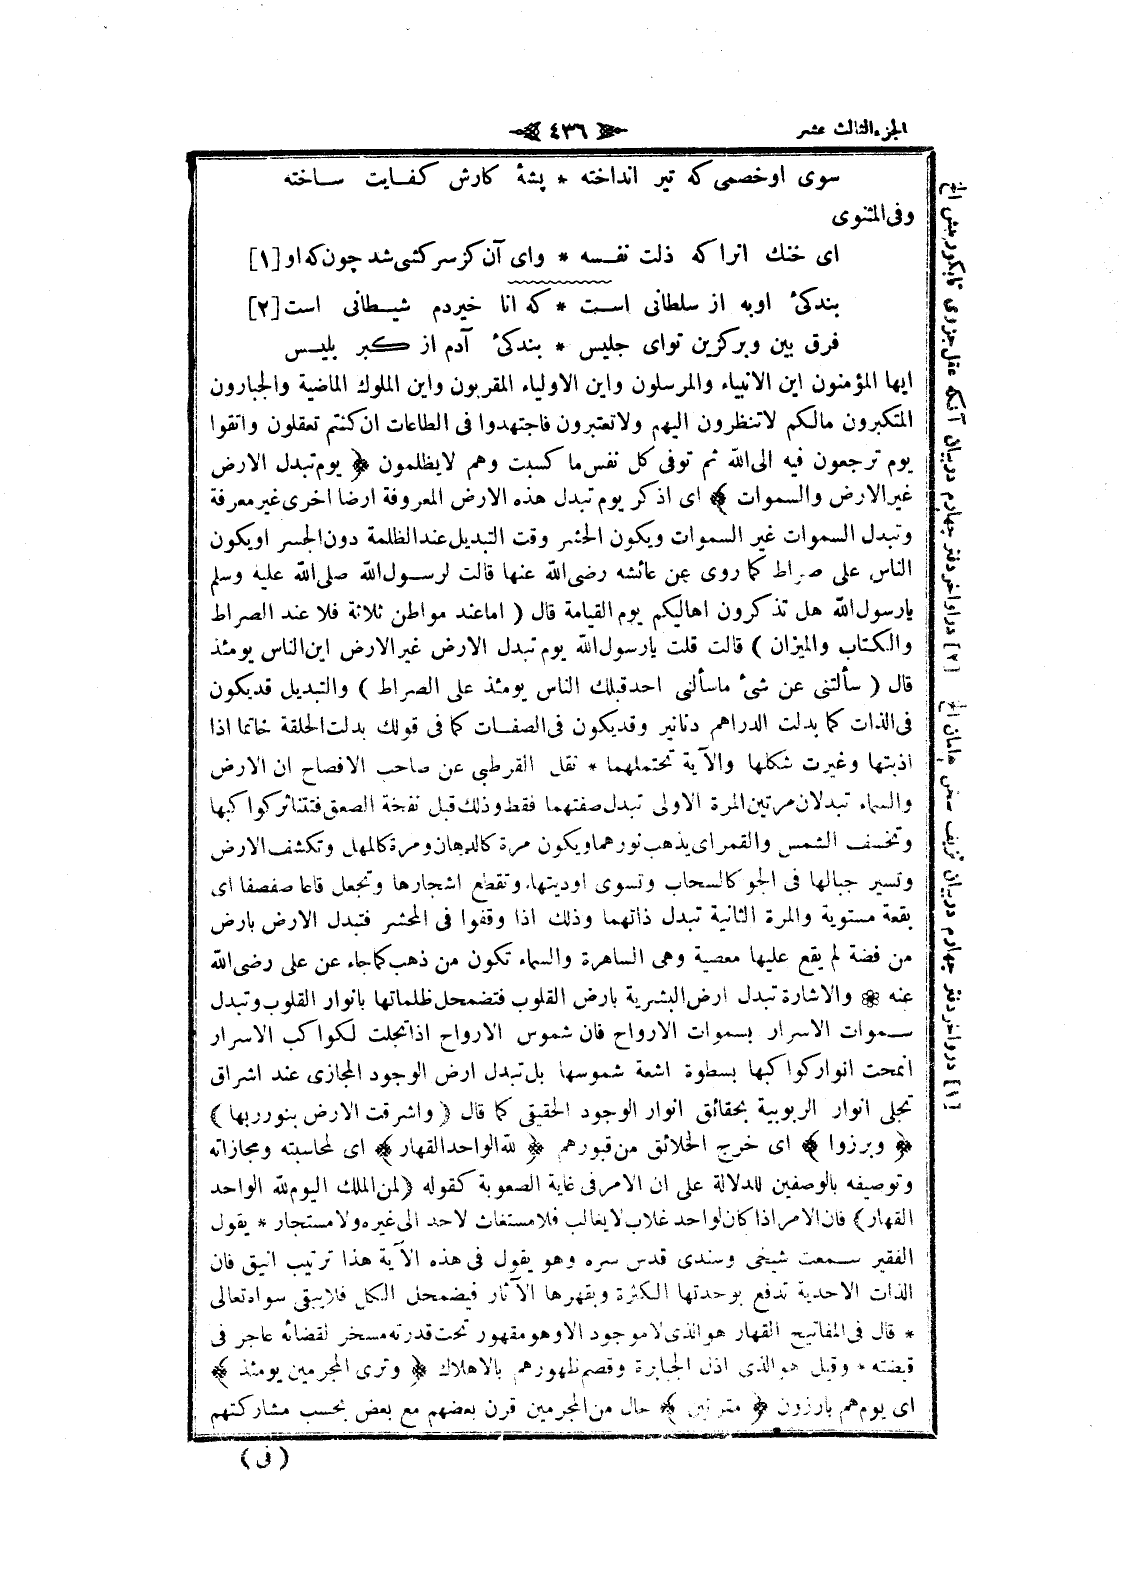 الجزء الثالث عشر
٤٣٦
سوى او خصمى كه تير انداخته * پشهٔ كارش كفايت ساخته
وفى المثنوى
اى خنك انرا كه ذلت نفسه * واى آن كز سركشى شد چون كه او [١]
بندكىٔ اوبه از سلطانى است * كه انا خيردم شيطانى است [٢]
فرق بين وبركزين تواى جليس * بندكىٔ آدم از كبر بليس
ايها المؤمنون اين الانبياء والمرسلون واين الاولياء المقربون واين الملوك الماضية والجبارون
المتكبرون مالكم لاتنظرون اليهم ولاتعتبرون فاجتهدوا فى الطاعات ان كنتم تعقلون واتقوا
يوم ترجعون فيه الى الله ثم توفى كل نفس ما كسبت وهم لايظلمون ﴿ يوم تبدل الارض
غير الارض والسموات ﴾ اى اذكر يوم تبدل هذه الارض المعروفة ارضا اخرى غير معرفة
وتبدل السموات غير السموات ويكون الحشر وقت التبديل عند الظلمة دون الجسر اويكون
الناس على صراط كما روى عن عائشه رضى الله عنها قالت لرسول الله صلى الله عليه وسلم
يارسول الله هل تذكرون اهاليكم يوم القيامة قال ( اماعند مواطن ثلاثة فلا عند الصراط
والكتاب والميزان ) قالت قلت يارسول الله يوم تبدل الارض غير الارض اين الناس يومئذ
قال ( سألتنى عن شئ ماسألنى احد قبلك الناس يومئذ على الصراط ) والتبديل قديكون
فى الذات كما بدلت الدراهم دنانير وقديكون فى الصفات كما فى قولك بدلت الحلقة خاتما اذا
اذبتها وغيرت شكلها والآية تحتملهما * نقل القرطبى عن صاحب الافصاح ان الارض
والسماء تبدلان مرتين المرة الاولى تبدل صفتهما فقط وذلك قبل نفخة الصعق فتتناثر كواكبها
وتخسف الشمس والقمر اى يذهب نورهما ويكون مرة كالدهان ومرة كالمهل وتكشف الارض
وتسير جبالها فى الجو كالسحاب وتسوى اوديتها وتقطع اشجارها وتجعل قاعا صفصفا اى
بقعة مستوية والمرة الثانية تبدل ذاتهما وذلك اذا وقفوا فى المحشر فتبدل الارض بارض
من فضة لم يقع عليها معصية وهى الساهرة والسماء تكون من ذهب كماجاء عن على رضى الله
عنه ❀ والاشارة تبدل ارض البشرية بارض القلوب فتضمحل ظلماتها بانوار القلوب وتبدل
سموات الاسرار بسموات الارواح فان شموس الارواح اذا تجلت لكواكب الاسرار
انمحت انوار كواكبها بسطوة اشعة شموسها بل تبدل ارض الوجود المجازى عند اشراق
تجلى انوار الربوبية بحقائق انوار الوجود الحقيقى كما قال ( واشرقت الارض بنور ربها )
﴿ وبرزوا ﴾ اى خرج الخلائق من قبورهم ﴿ لله الواحد القهار ﴾ اى لمحاسبته ومجازاته
وتوصيفه بالوصفين للدلالة على ان الامر فى غاية الصعوبة كقوله (لمن الملك اليوم لله الواحد
القهار) فان الامر اذا كان لواحد غلاب لايغالب فلا مستغاث لاحد الى غيره ولا مستجار * يقول
الفقير سمعت شيخى وسندى قدس سره وهو يقول فى هذه الآية هذا ترتيب انيق فان
الذات الاحدية تدفع بوحدتها الكثرة وبقهرها الآثار فيضمحل الكل فلايبقى سواه تعالى
* قال فى المفاتيح القهار هو الذى لا موجود الا وهو مقهور تحت قدرته مسخر لقضائه عاجز فى
قبضته * وقيل هو الذى اذل الجبابرة وقصم ظهورهم بالاهلاك ﴿ وترى المجرمين يومئذ ﴾
اى يوم هم بارزون ﴿ مقرنين ﴾ حال من المجرمين قرن بعضهم مع بعض بحسب مشاركتهم
( فى )
[١] درواخر دفتر چهارم دربيان تزييف سخن هامان الخ [٢] دراواخر دفتر چهارم دربيان آنكه عقل جزوى تابكور بيش الخ